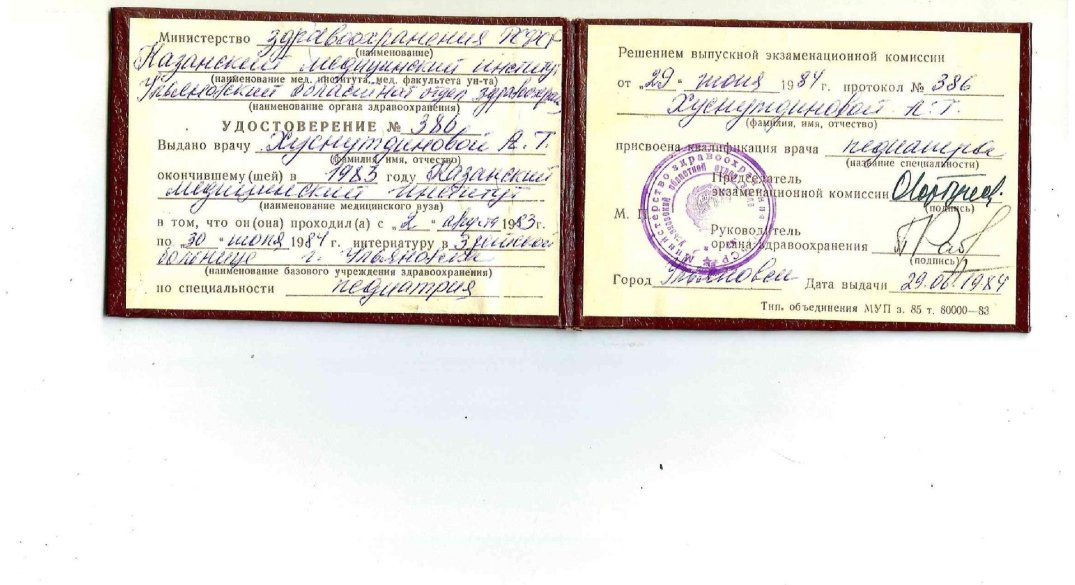 Министерство здравоохранения
(наименование)
Казанский медицинский институт
(наименование мед. института, мед. факультета ун-та)
Ульяновский областной отдел здравоохран
(наименование органа здравоохранения)
УДОСТОВЕРЕНИЕ № 386
Выдано врачу Хуснутдиновой
(фамилия, имя, отчество)
окончившему (шей) в 1983 году Казанский
медицинский институт
(наименование медицинского вуза)
в том, что он (она) проходил(а) с „2„ августа 1983г.
по „30„ июня 1984 г. интернатуру в
больнице г. Ульяновска
(наименование базового учреждения здравоохранения)
по специальности педиатрия
Решением выпускной экзаменационной комиссии
от „29„ июня 1984 г. протокол № 386
Хуснутдиновой
(фамилия, имя, отчество)
присвоена квалификация врача педиатра
(название специальности)
Председатель
экзаменационной комиссии
(подпись)
М. П.
Руководитель
органа здравоохранения
(подпись)
Город Ульяновск Дата выдачи 29.06.1984
Тип. объединения МУП з. 85 т. 80000—83